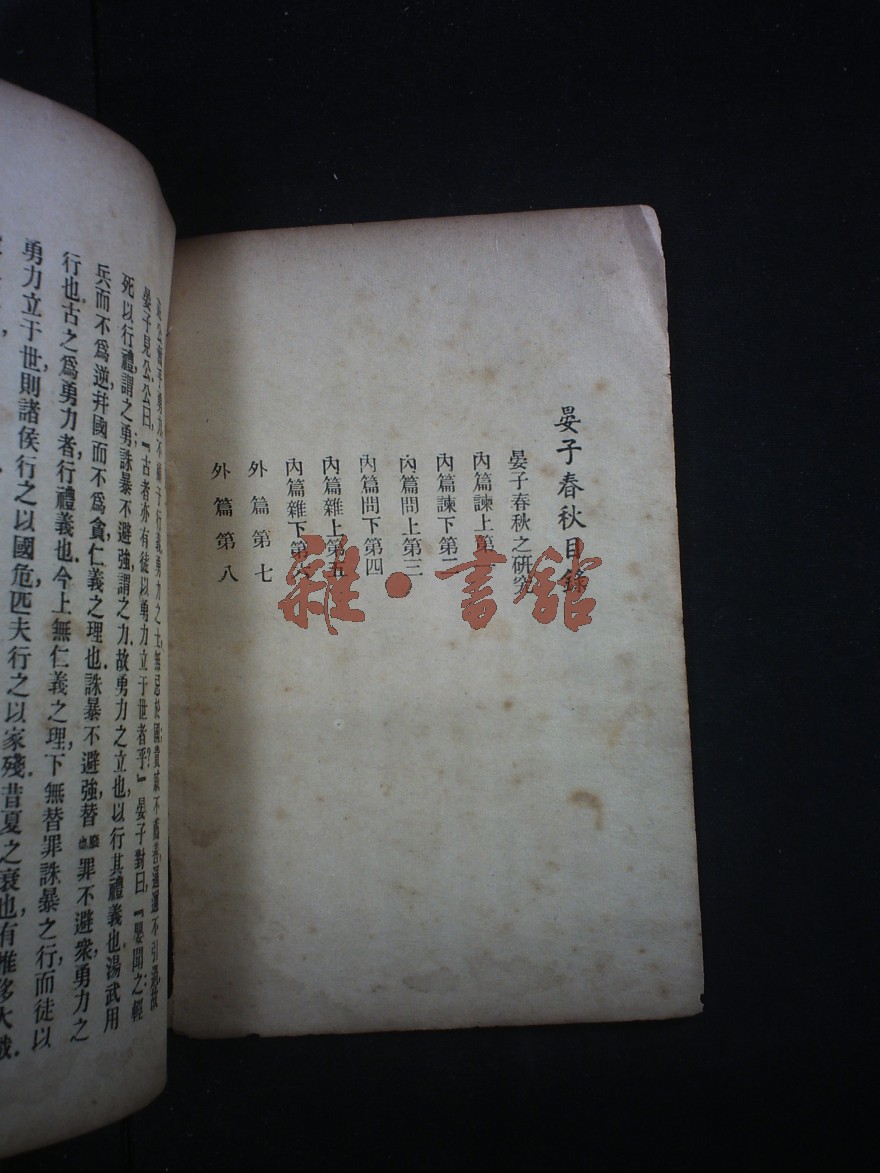 晏子春秋目錄
晏子春秋之研究
內篇諫上第一
內篇諫下第二
內篇問上第三
內篇問下第四
內篇雜上第五
內篇雜下第六
外篇第七
外篇第八
雜·書館
莊公奮乎勇力不顧于行義勇力之士無忌於國貴戚不薦善逼邇不引過故
晏子見公公曰，『古者亦有徒以勇力立于世者乎？』晏子對曰，『嬰聞之：輕
死以行禮，謂之勇；誅暴不避強，謂之力。故勇力之立也，以行其禮義也。湯武用
兵而不爲逆，幷國而不爲貪，仁義之理也。誅暴不避強，替罪不避衆，勇力之
行也。古之爲勇力者，行禮義也。今上無仁義之理，下無替罪誅暴之行，而徒以
勇力立于世，則諸侯行之以國危，匹夫行之以家殘。昔夏之衰也，有推移大戲